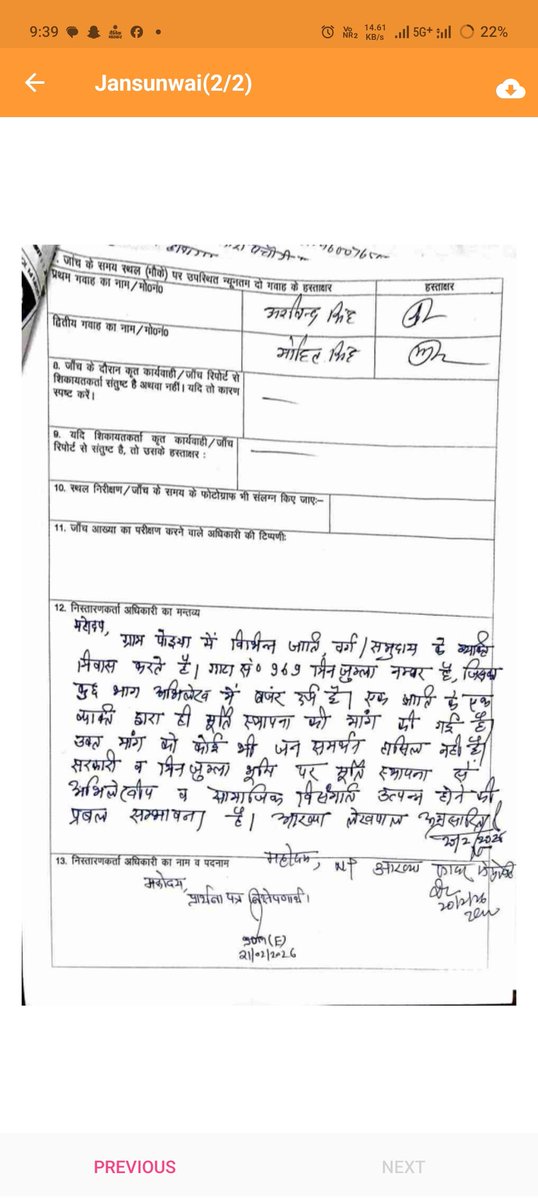 9:39
Vo
NR2
14.61
KB/s
5G+
22%
Jansunwai(2/2)
जाँच के समय स्थल (मौके) पर उपस्थित न्यूनतम दो गवाह के हस्ताक्षर
प्रथम गवाह का नाम/मो०नं० हस्ताक्षर
अरविन्द सिंह
द्वितीय गवाह का नाम/मो०नं०
मोहित सिंह
8. जाँच के दौरान कृत कार्यवाही/जाँच रिपोर्ट से
शिकायतकर्ता संतुष्ट है अथवा नहीं। यदि तो कारण
स्पष्ट करें।
9. यदि शिकायतकर्ता कृत कार्यवाही/जाँच
रिपोर्ट से संतुष्ट है, तो उसके हस्ताक्षर :
10. स्थल निरीक्षण/जाँच के समय के फोटोग्राफ भी संलग्न किए जाए:-
11. जाँच आख्या का परीक्षण करने वाले अधिकारी की टिप्पणी:
12. निस्तारणकर्ता अधिकारी का मन्तव्य
महोदय,
ग्राम में विभिन्न जाति, वर्ग/समुदाय के व्यक्ति
निवास करते हैं। गाटा सं० 969 मिनजुमला नम्बर है, जिसका
कुछ भाग अभिलेख में बंजर दर्ज है। एक जाति के एक
व्यक्ति द्वारा ही मूर्ति स्थापना की मांग की गई है।
उक्त मांग को कोई भी जन समर्थन हासिल नहीं है।
सरकारी व मिनजुमला भूमि पर मूर्ति स्थापना से
अभिलेखीय व सामाजिक विसंगति उत्पन्न होने की
प्रबल सम्भावना है। आख्या लेखपाल
20/2/2026
13. निस्तारणकर्ता अधिकारी का नाम व पदनाम
महोदय, NT आख्या
महोदय,
प्रार्थना पत्र निक्षेपणार्थ।
20/2/26
SDM(E)
21/02/2026
PREVIOUS
NEXT